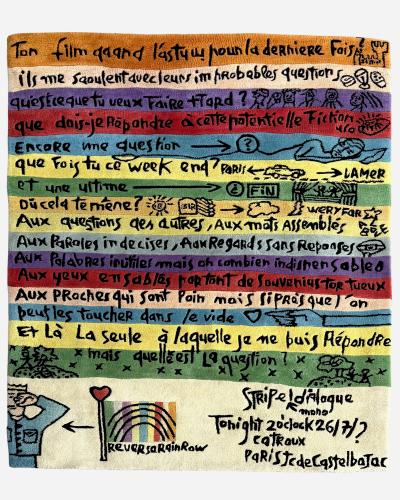 Ton film quand l'as tu vu pour la derniere Fois?
ils me saoulent avec leurs improbables question
qu'est ce que tu veux Faire + Tard?
que dois-je Répondre à cette potentielle Fiction
Encore une question → ?
que Fais tu ce week end? PARIS LAMER
et une ultime → ? FIN
Où cela te mène? SIR → WERYFAR
Aux questions des autres, Aux mots Assemblés
Aux Paroles indecises, Aux Regards sans Réponses
Aux Palabres inutiles mais oh combien indispensables
Aux yeux ensablés portant de souvenirs tortueux
Aux PRoches qui sont loin mais si PRès que l'on
peut les toucher dans le vide
Et Là La seule à laquelle je ne puis Répondre
x mais quelle est La question? x x
STRiPe! diAlogue
mono
Tonight 2o'clock 26/7/?
catroux
PARiS Jc de Castelbajac
ReveRsaRainRow